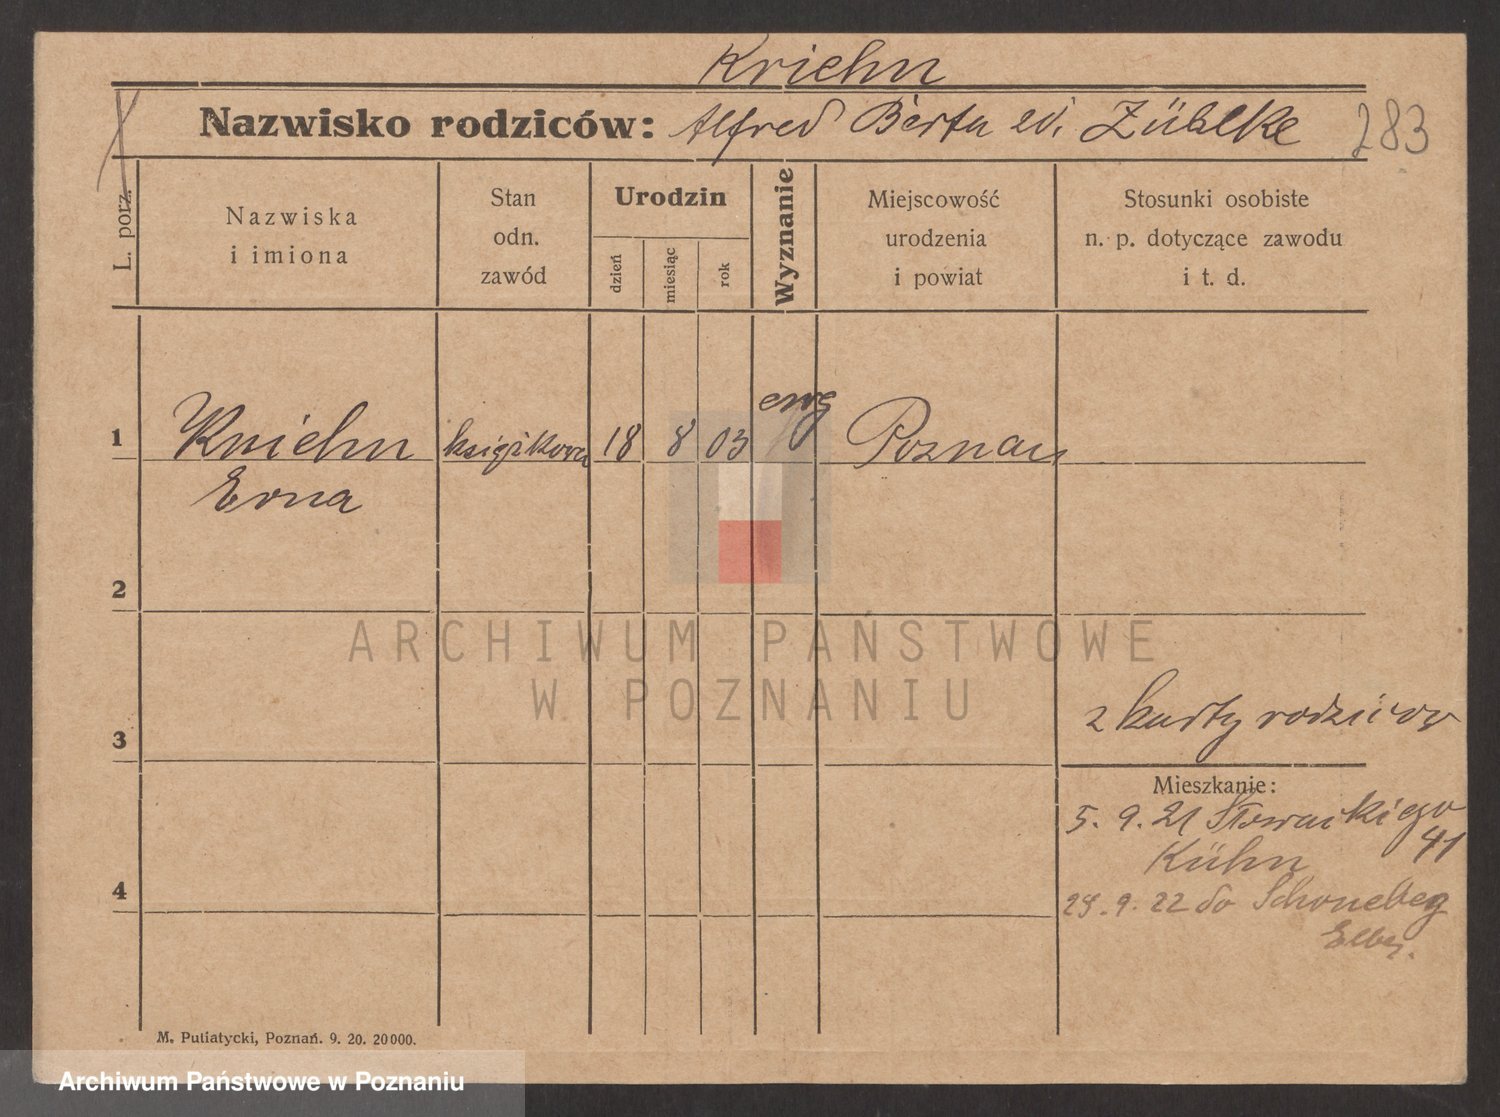 Kriehn
Nazwisko rodziców: Alfred Berta zd. Züblke
283
L. porz.
Nazwiska
i imiona
Stan
odn.
zawód
Urodzin
dzień
miesiąc
rok
Wyznanie
Miejscowość
urodzenia
i powiat
Stosunki osobiste
n. p. dotyczące zawodu
i t. d.
1
Kriehn
Erna
książkowa
18
8
03
ewg
Poznań
2
ARCHIWUM PAŃSTWOWE
W POZNANIU
3
z karty rodziców
Mieszkanie:
5. 9. 21 Słowackiego
41
Kühn
4
28. 9. 22 do Schonebeg
Elby.
M. Putiatycki, Poznań. 9. 20. 20000.
Archiwum Państwowe w Poznaniu